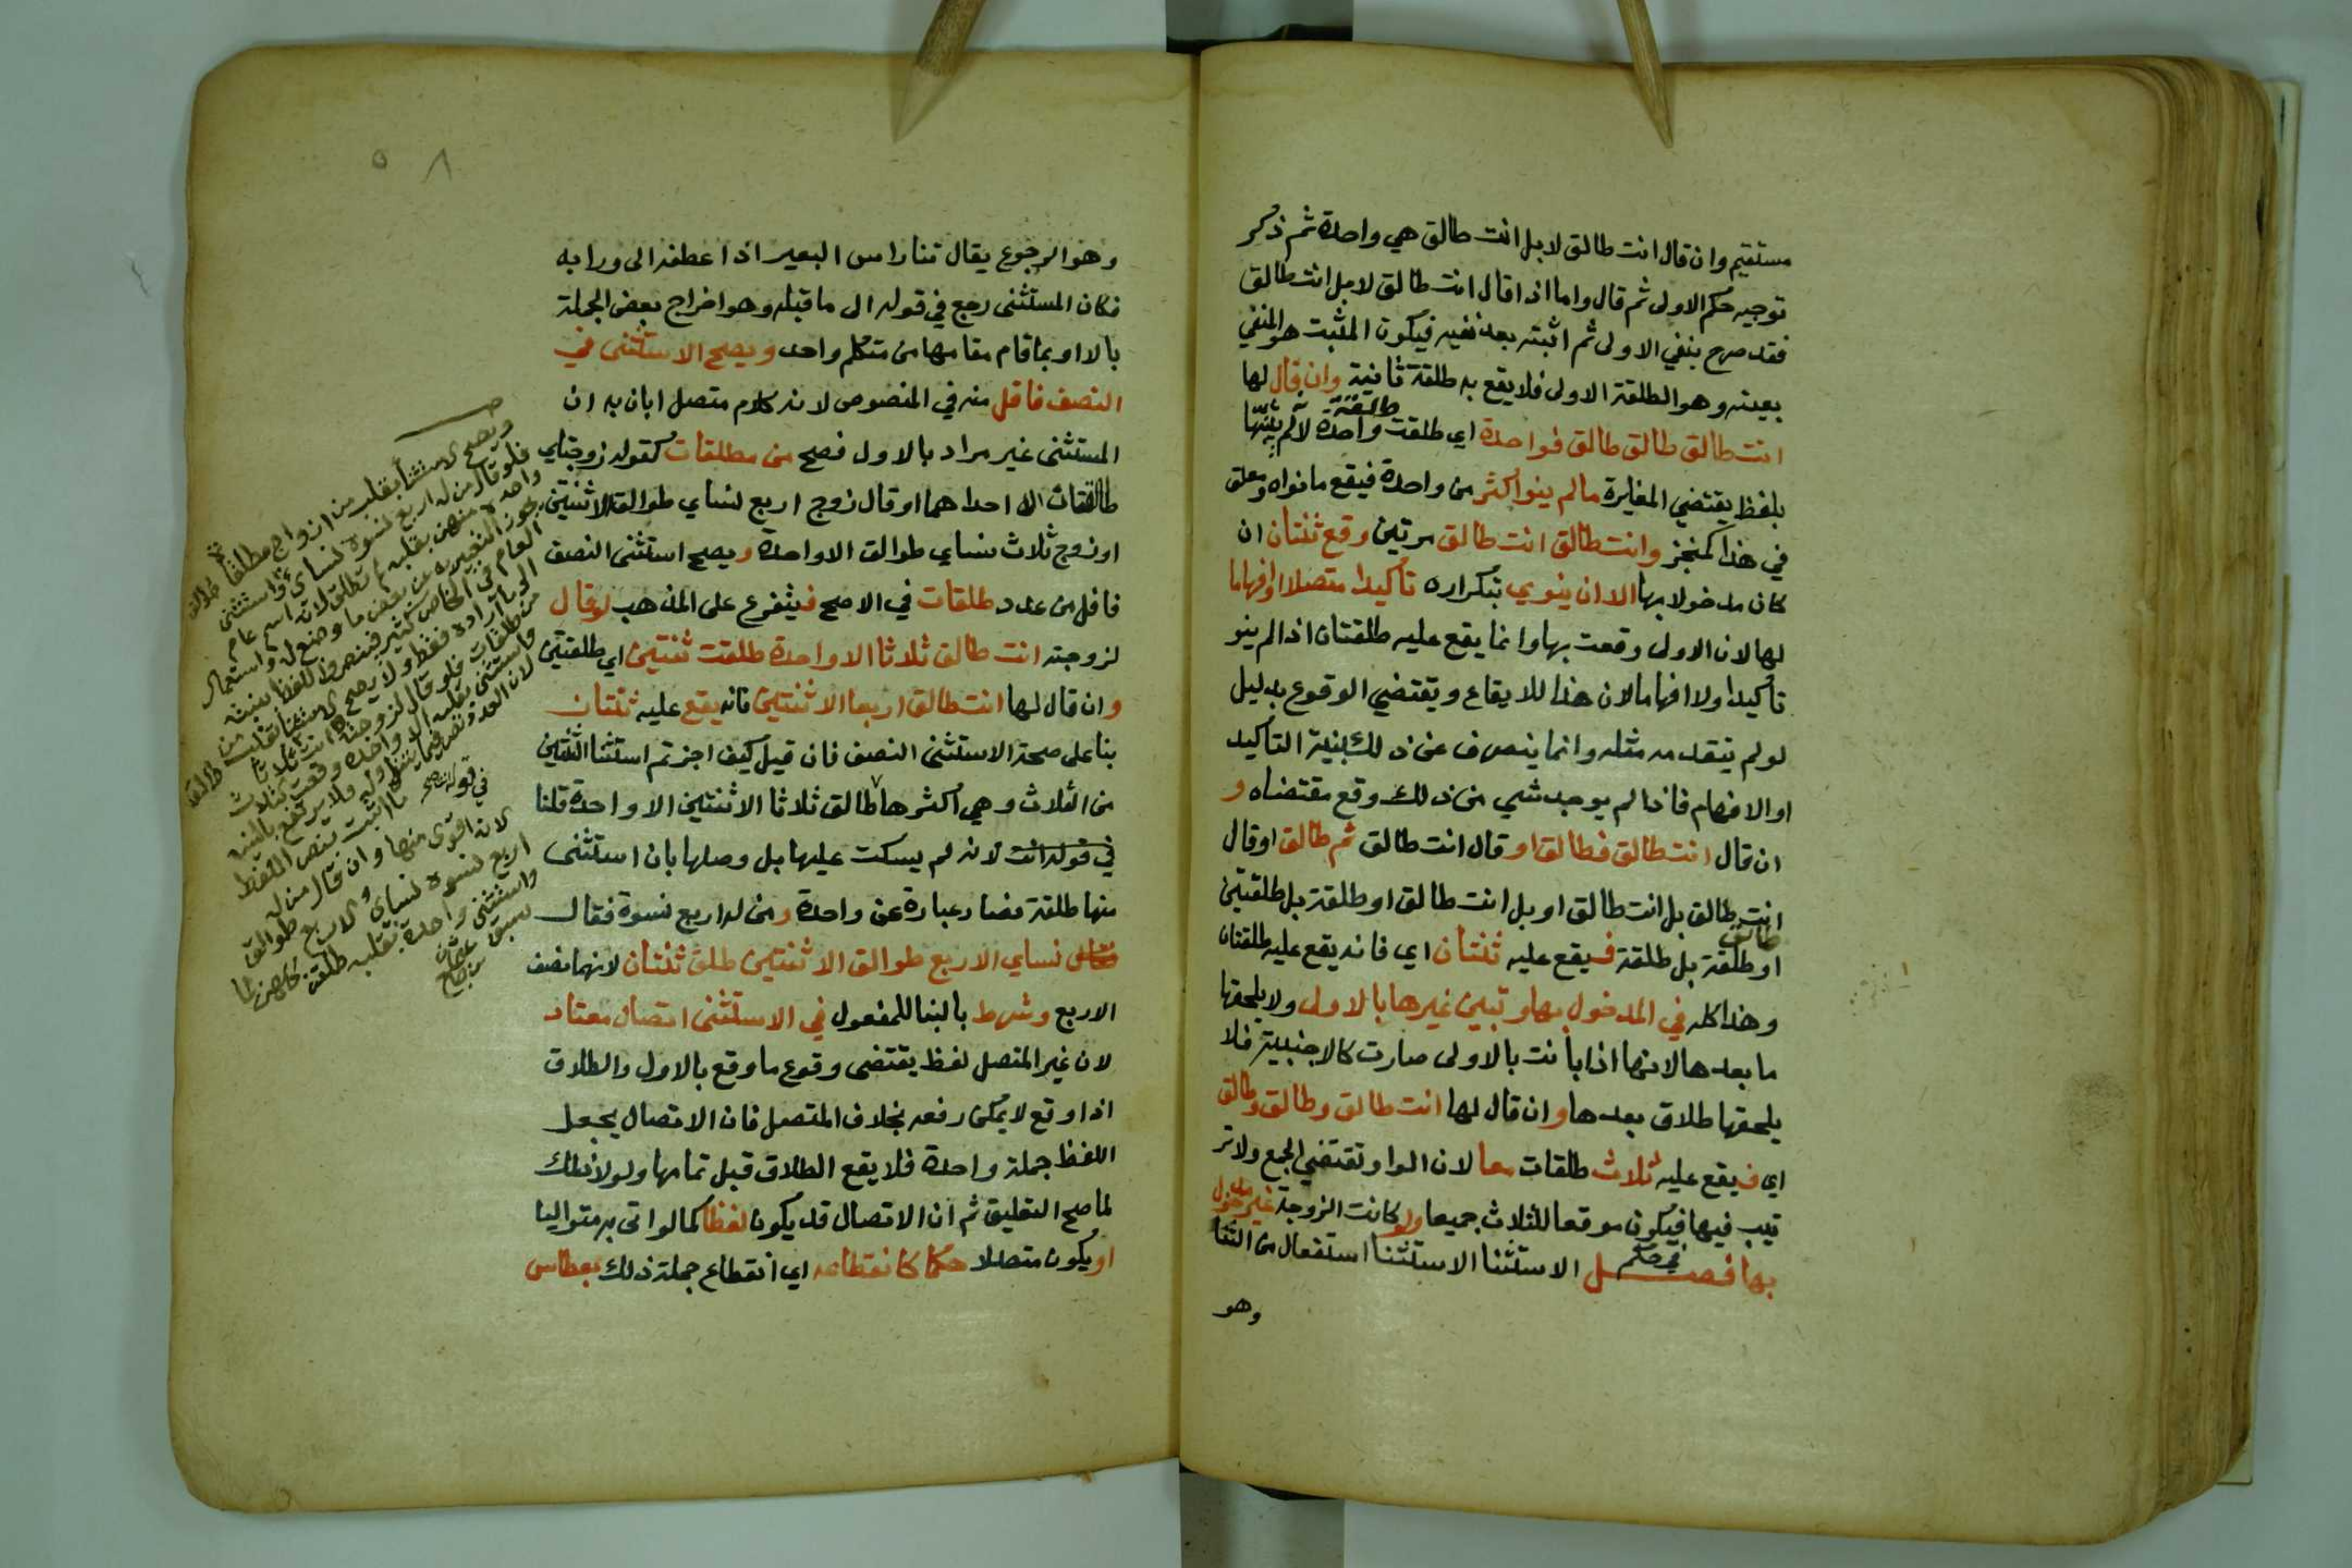 مستقيم وان قال انت طالق لا بل انت طالق هي واحدة ثم ذكر
توجيه حكم الاول ثم قال واما اذا قال انت طالق لا بل انت طالق
فقد صرح بنفي الاولى ثم اثبته بعد نفيه فيكون المثبت هو المنفي
بعينه وهو الطلقة الاولى فلا يقع به طلقة ثانية وان قال لها
انت طالق طالق طالق فواحدة اي طلقت واحدة طلقة لانه لم يبنها
بلفظ يقتضي المغايرة مالم ينوا كثر من واحدة فيقع مانواه ومعلق
في هذا كمنجز وانت طالق انت طالق مرتين وقع ثنتان ان
كان مدخولا بها الا ان ينوي بتكراره تأكيدا متصلا او افهاما
لها لان الاولى وقعت بها وانما يقع عليه طلقتان اذا لم ينو
تأكيدا ولا افهاما لان هذا للايقاع ويقتضي الوقوع بدليل
لو لم يتقدمه مثله وانما ينصرف عن ذلك بنية التأكيد
او الافهام فاذا لم يوجد شي من ذلك وقع مقتضاه و
ان قال انت طالق فطالق او قال انت طالق ثم طالق او قال
انت طالق بل انت طالق او بل انت طالق او طلقة بل طلقتين
او طلقة بل طلقة فيقع عليه ثنتان اي فانه يقع عليه طلقتان
طالق
وهذا كله في المدخول بها وتبين غيرها بالاولى ولا يلحقها
ما بعدها لانها اذا بانت بالاولى صارت كالاجنبية فلا
يلحقها طلاق بعدها وان قال لها انت طالق وطالق وطالق
اي فيقع عليه ثلاث طلقات معا لان الواو تقتضي الجمع ولا تر
تيب فيها فيكون موقعا للثلاث جميعا ولو كانت الزوجة غير مدخول
بها فصل في حكم الاستثنا الاستثنا استفعال من الثنا
وهو
٥٨
وهو الرجوع يقال ثنا راس البعير اذا عطفه الى ورايه
فكان المستثنى رجع في قوله الى ما قبله وهو اخراج بعض الجملة
بالا او بما قام مقامها من متكلم واحد ويصح الاستثنى في
النصف فاقل منه في المنصوص لانه كلام متصل ابان به ان
المستثنى غير مراد بالاول فصح من مطلقات كقوله زوجتاي
طالقتان الا احداهما او قال زوج اربع نساي طوالق الا ثنتين
او زوج ثلاث نساي طوالق الا واحدة ويصح استثنى النصف
فاقل من عدد طلقات في الاصح فيتفرع على المذهب لو قال
لزوجته انت طالق ثلاثا الا واحدة طلقت ثنتين اي طلقتين
وان قال لها انت طالق اربعا الا ثنتين فانه يقع عليه ثنتان
بنا على صحة الاستثنى النصف فان قيل كيف اجزتم استثنا الثنتين
من الثلاث وهي اكثرها طالق ثلاثا الا ثنتين الا واحدة قلنا
في قوله انت لانه لم يسكت عليها بل وصلها بان استثنى
منها طلقة فصار عبارة عن واحدة ومن له اربع نسوة فقال
نساي الاربع طوالق الا ثنتين طلق ثنتان لانهما نصف
الاربع وشرط بالبنا للمفعول في الاستثنى اتصال معتاد
لان غير المتصل لفظ يقتضي وقوع ما وقع بالاول والطلاق
اذا وقع لا يمكن رفعه بخلاف المتصل فان الاتصال يجعل
اللفظ جملة واحدة فلا يقع الطلاق قبل تمامها ولولا ذلك
لما صح التعليق ثم ان الاتصال قد يكون لفظا كما لو اتى به متواليا
او يكون متصلا حكما كانقطاعه اي انقطاع جملة ذلك بعطاس
ويصح الاستثنا بقلبه من ازواج مطلقا
فلو قال من له اربع نسوة نساي طوالق واستثنى
واحدة منهن بقلبه لم تطلق لانه اسم عام
يجوز التعبير به عن بعض ما وضع له واستعمال
العام في الخاص كثير فينصرف اللفظ بنيته
الى ما اراده فقط ولا يصح الاستثنا بقلبه من
من طلقات فلو قال لزوجته انت طالق ثلاثا
واستثنى بقلبه الا واحدة وقعت الثلاث
لان العدد نص فيما يتناوله فلا يرتفع بالنية
ما ثبت بنص اللفظ
لانه اقوى منها وان قال من له
اربع نسوة نساي الاربع طوالق
واستثنى واحدة بقلبه طلقن